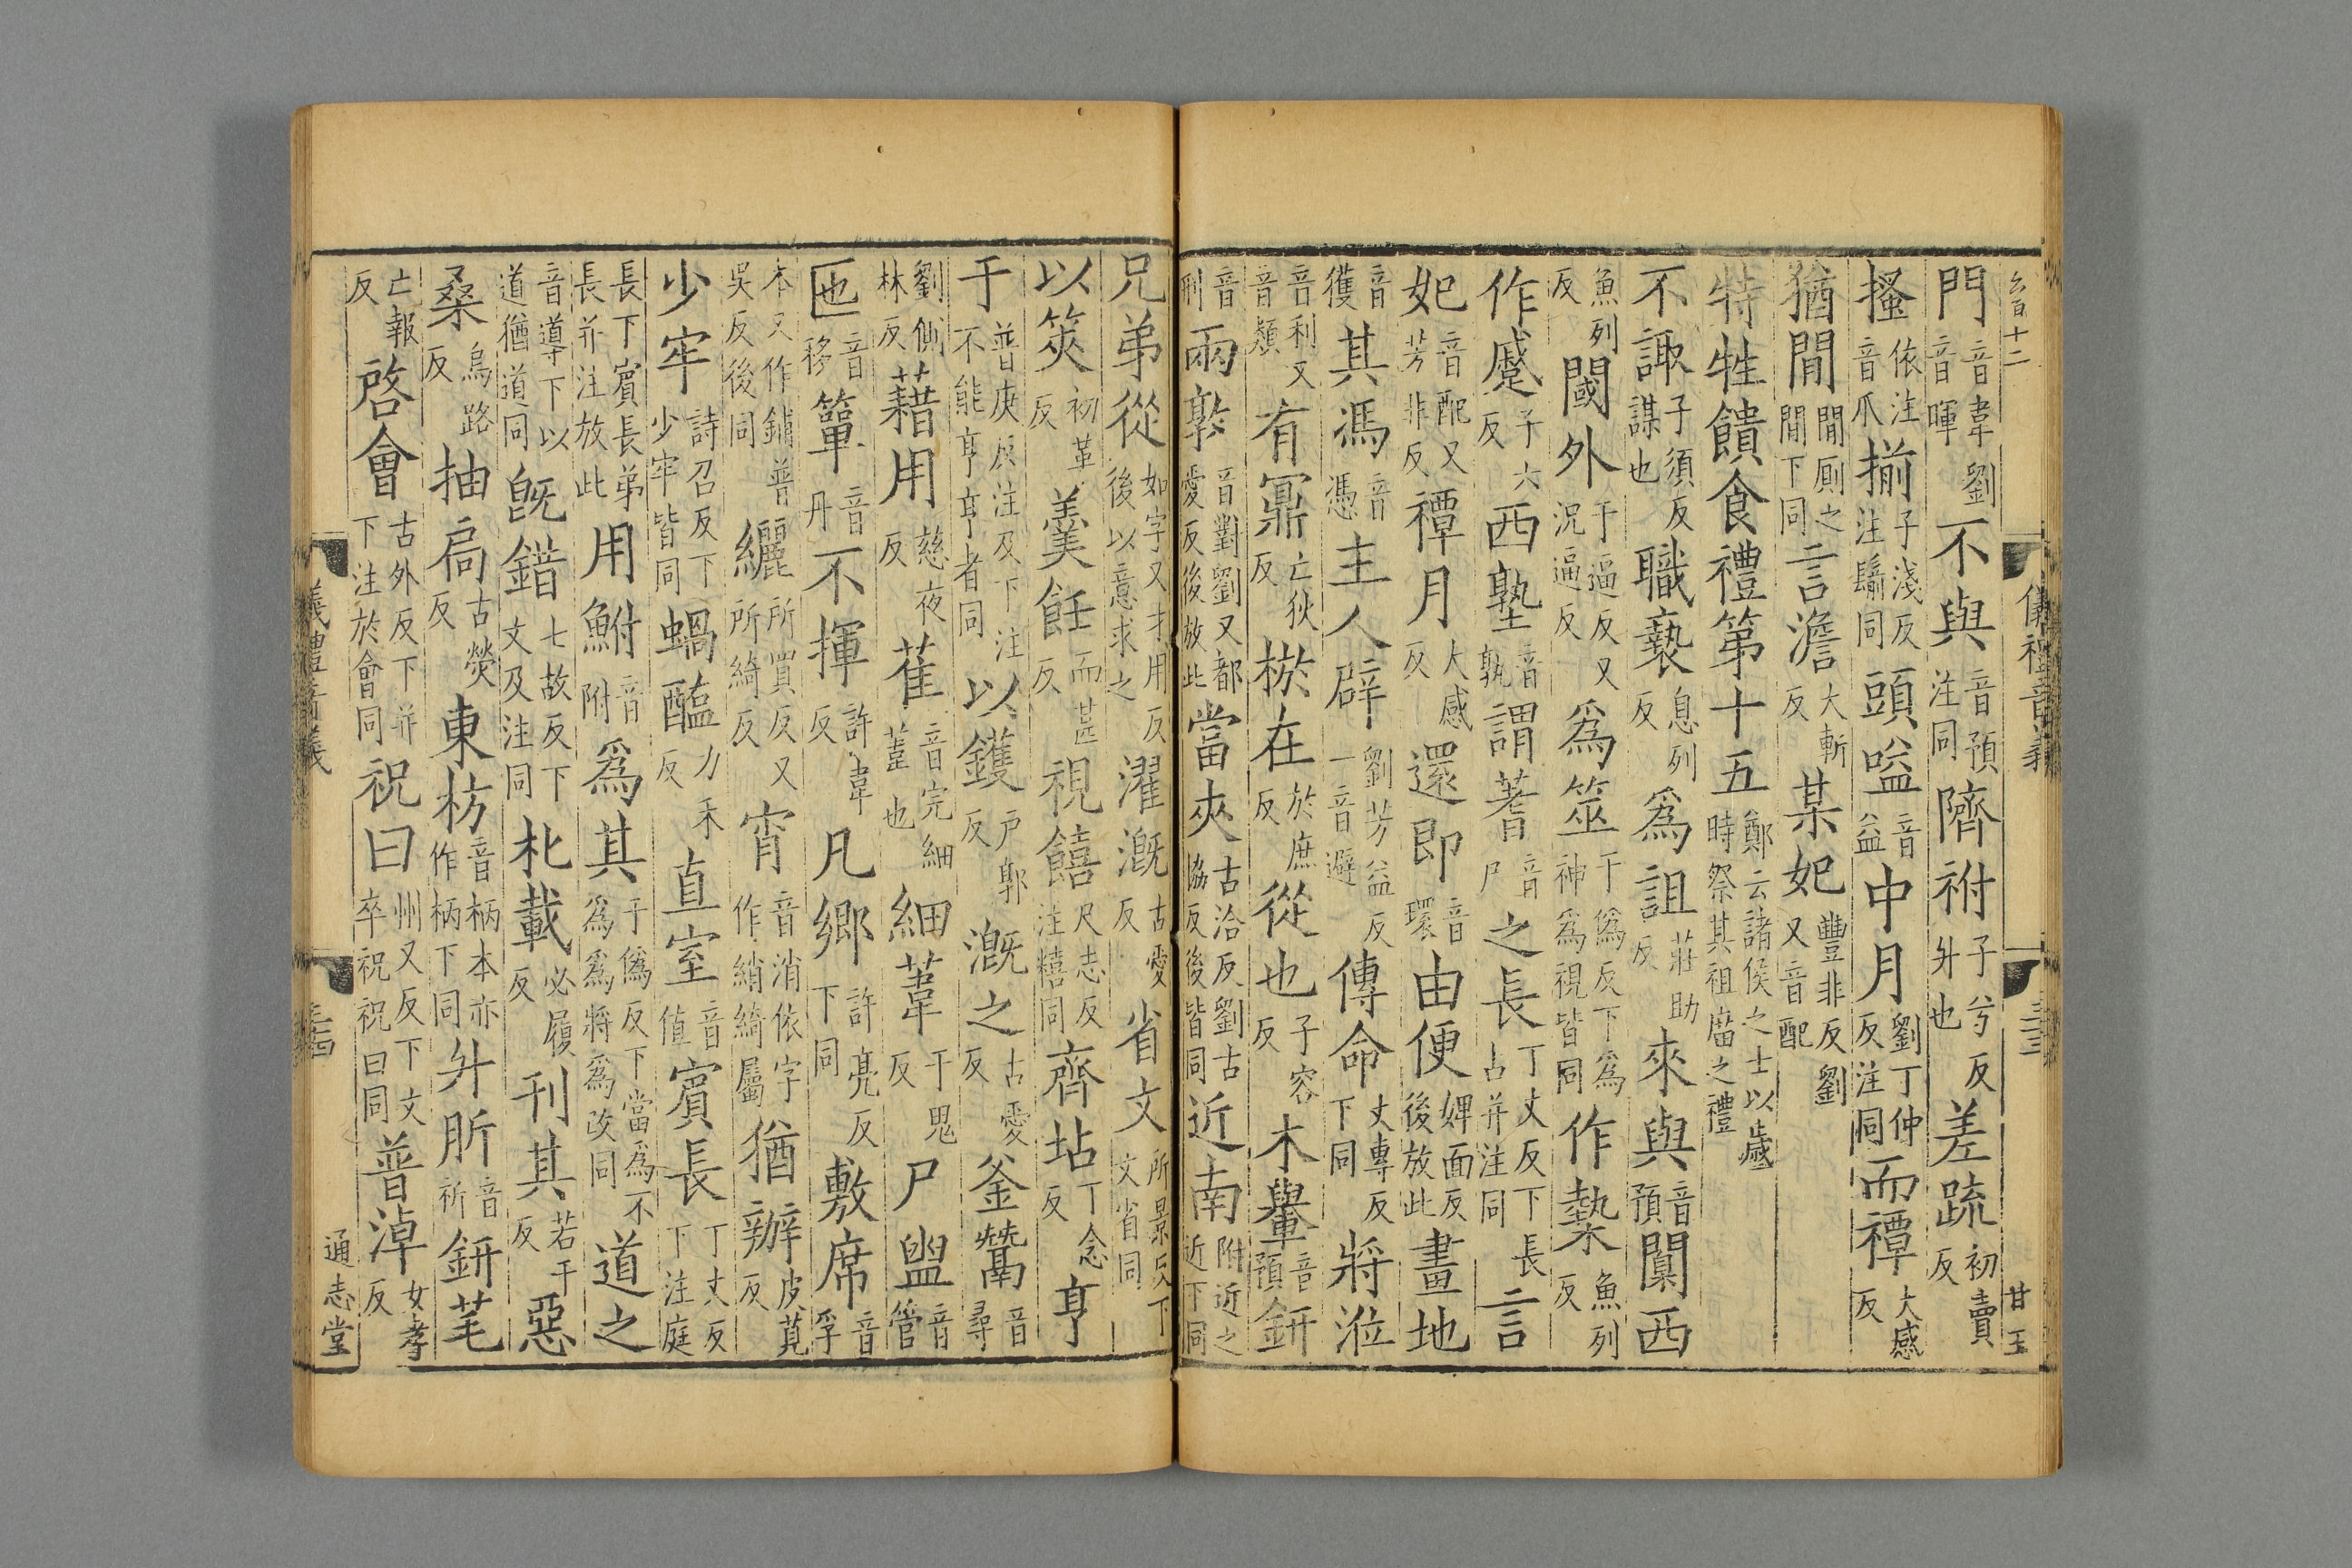 門音韋劉音暉不與音預注同隮祔子兮反升也差疏初賣反
搔依注音爪揃子淺反注鬋同頭嗌音益中月劉丁仲反注同而禫大感反
猶閒閒厠之閒下同言澹大斬反某妃豐非反劉又音配
特牲饋食禮第十五鄭云諸侯之士以歲時祭其祖廟之禮
不諏子須反謀也職䙝息列反爲詛莊助反來與音預闑西
魚列反閾外于逼反又況逼反爲筮于僞反下爲神爲視皆同作槷魚列反
作蹙子六反西塾音孰謂蓍音尸之長丁丈反下長占并注同言
妃音配又芳非反禫月大感反還即音環由便婢面反後放此畫地
音獲其馮音憑主人辟劉芳益反一音避傳命丈專反下同將涖
音利又音類有鼏亡狄反棜在於庶反從也子容反木轝音預鉶
音刑兩敦音對劉又都愛反後放此當夾古洽反劉古協反後皆同近南附近之近下同
兄弟從如字又才用反後以意求之濯溉古愛反省文所景反下文省同
以筴初革反羹飪而甚反視饎尺志反注糦同齊坫丁念反亨
于普庚反注及下注不能亨亨者同以鑊戶郭反溉之古愛反釜鬵音尋
劉側林反藉用慈夜反萑音完細葦也細葦于鬼反尸盥音管
匜音移簞音丹不揮許韋反凡鄉許亮反下同敷席音孚
本又作鋪普吳反後同纚所買反又所綺反宵音消依字作綃綺屬猶辦皮莧反
少牢詩召反下少牢皆同蝸醢力禾反直室音值賓長丁丈反下注庭
長下賓長弟長并注放此用鮒音附爲其于僞反下當爲不爲爲將爲改同道之
音導下以道猶道同旣錯七故反下文及注同朼載必履反刊其若干反惡
桑烏路反抽扃古熒反東枋音柄本亦作柄下同升肵音祈鉶芼
亡報反啓會古外反下并下注於會同祝曰州又反下文卒祝祝曰同普淖女孝反
儀禮音義
三三
甘玉
儀禮音義
三四
通志堂